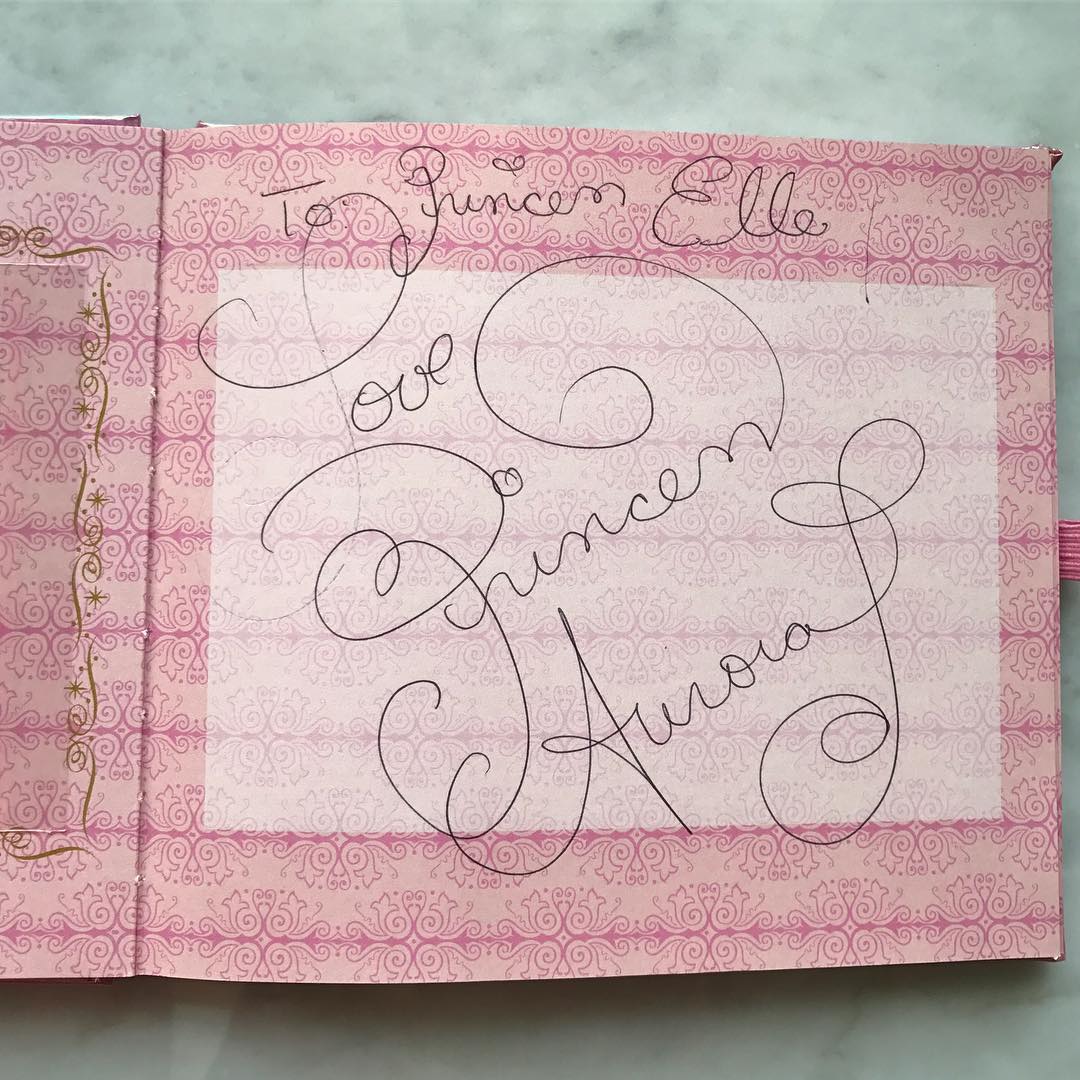 To: Princess Elle
Love
Princess
Aurora